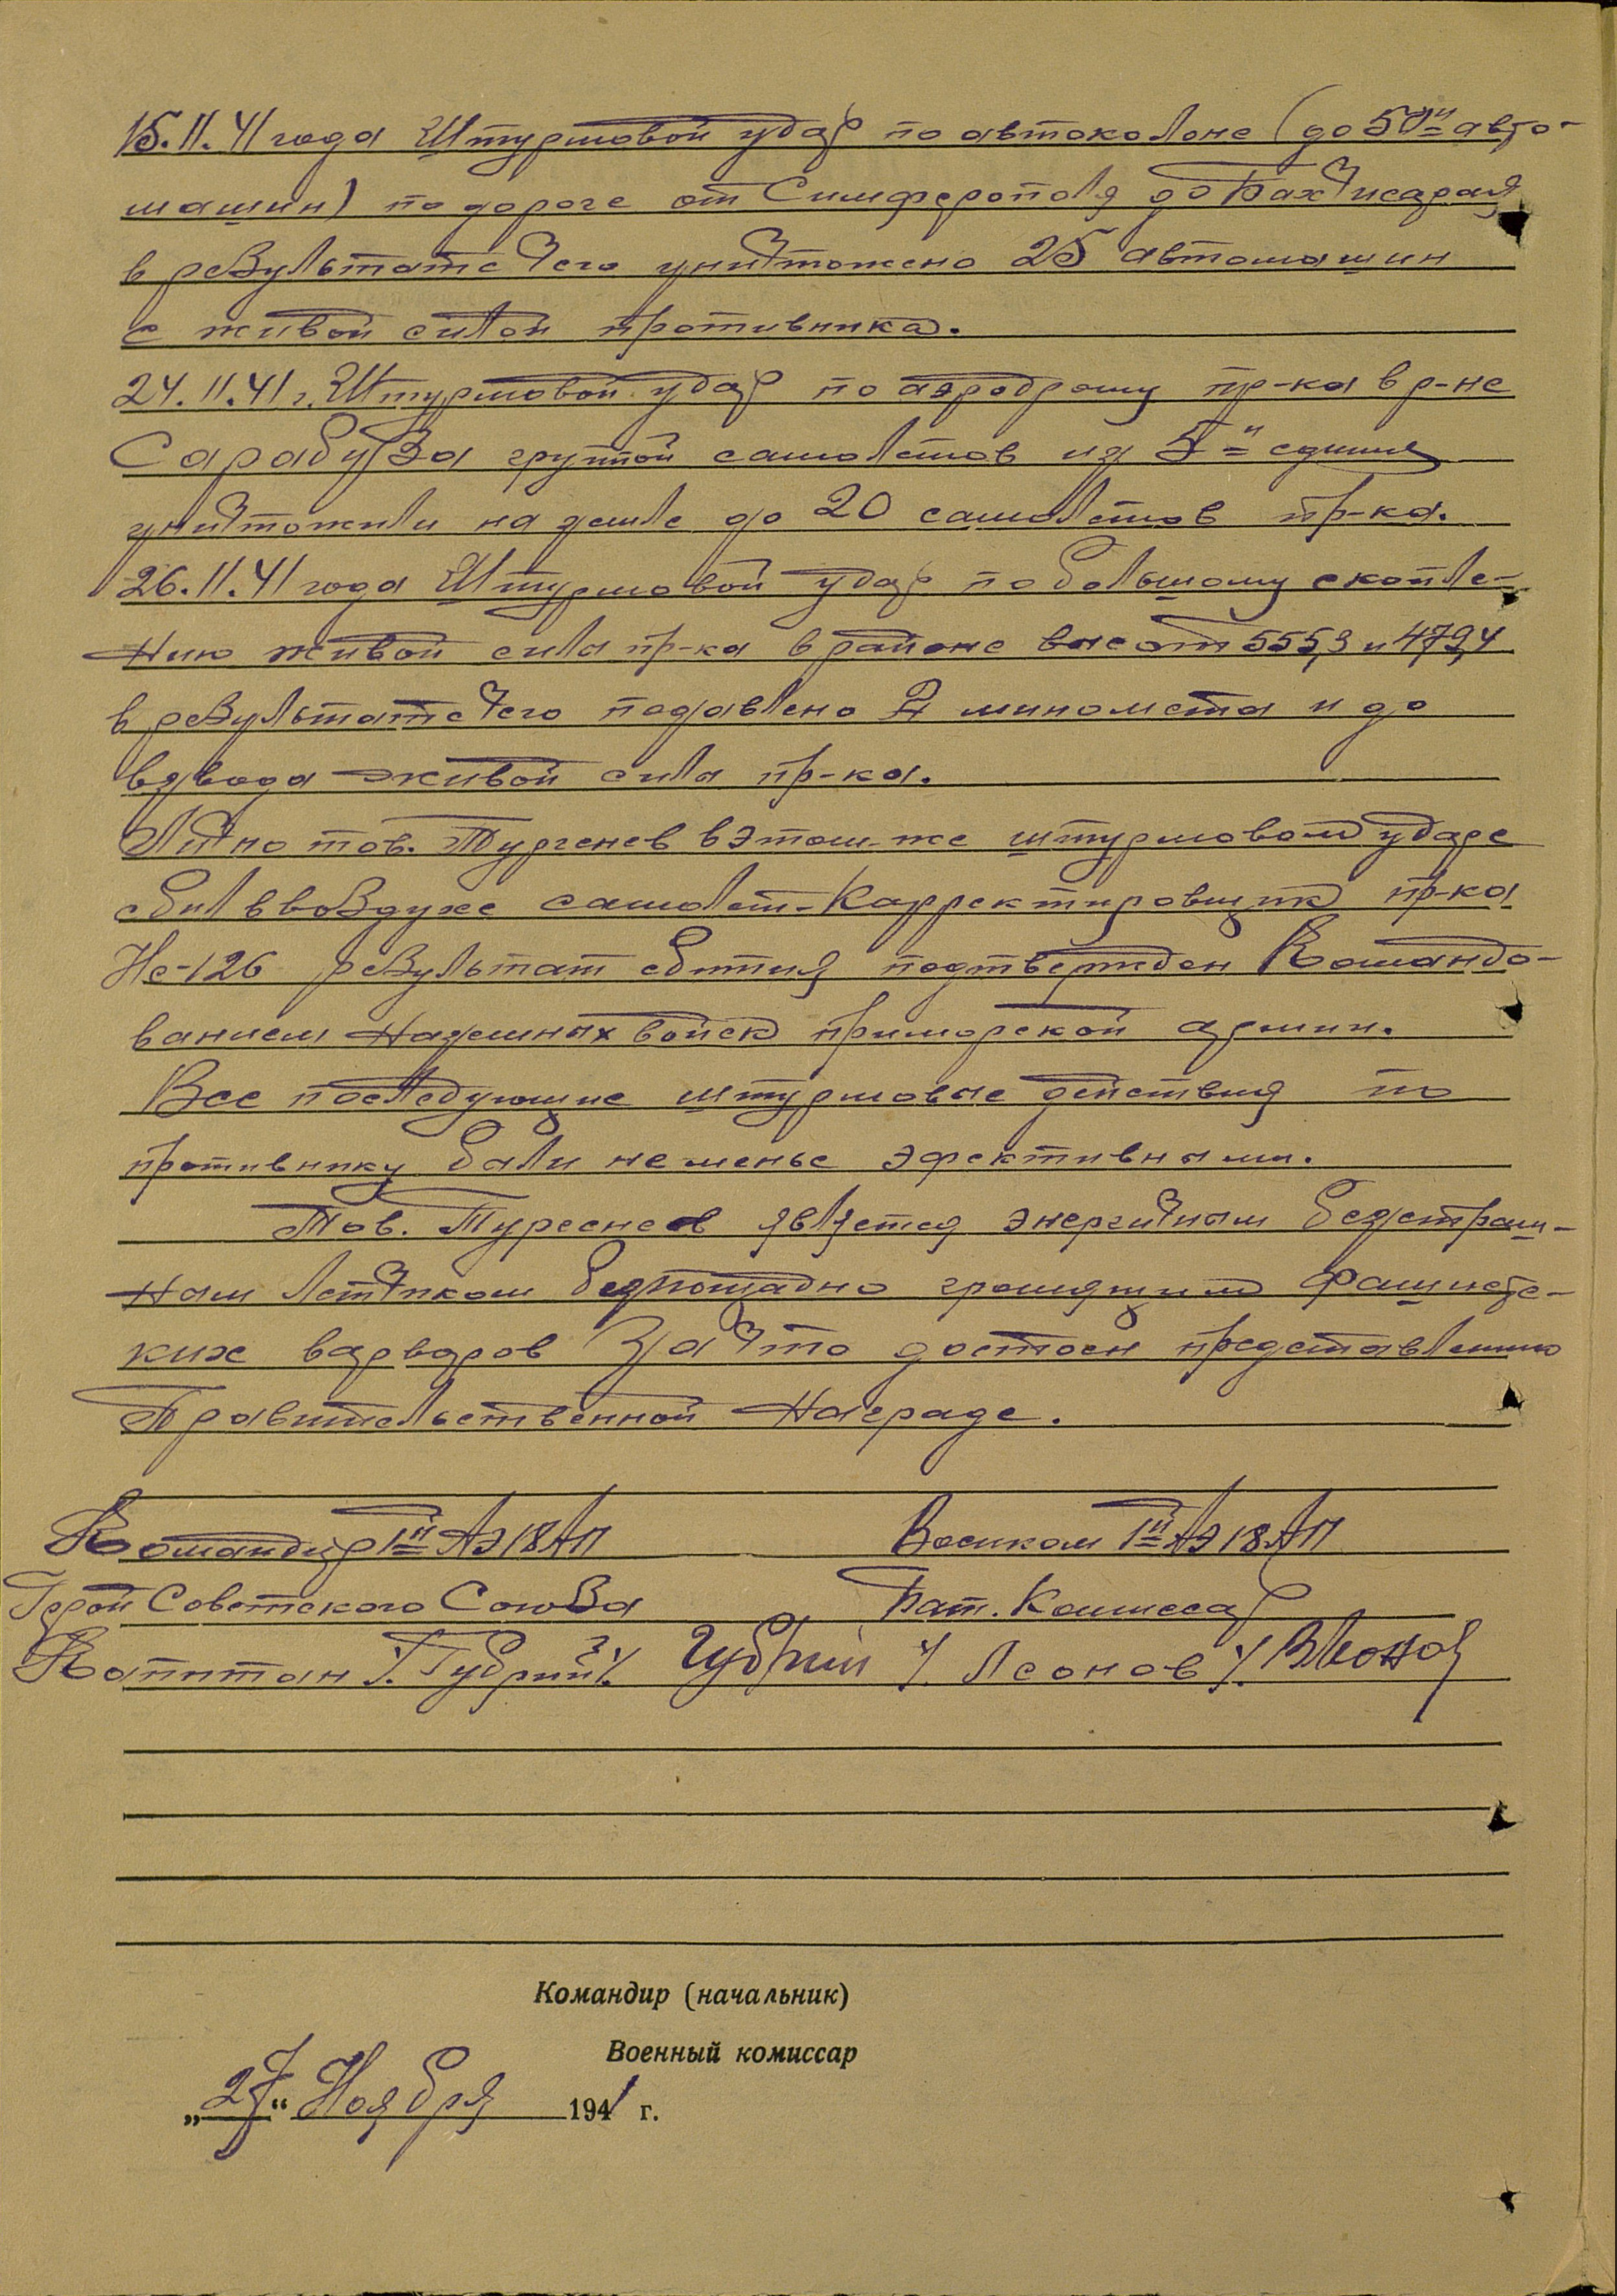 15.11.41 года Штурмовой удар по автоколоне (до 50ти авто-
машин) по дороге от Симферополя до Бахчисарая
в результате чего уничтожено 25 автомашин
с живой силой противника.
24.11.41 г. Штурмовой удар по аэродрому пр-ка в р-не
Сарабуза группой самолетов из 5-и единиц
уничтожили на земле до 20 самолетов пр-ка.
26.11.41 года Штурмовой удар по большому скопле-
нию живой силы пр-ка в районе высот 555,3 и 479,4
в результате чего подавлено 2 миномета и до
взвода живой силы пр-ка.
Лично тов. Тургенев в этом-же штурмовом ударе
сбил в воздухе самолет-Карректировщик пр-ка
Не-126 результат сбития подтвержден Командо-
ванием наземных войск приморской армии.
Все последующие штурмовые действия по
противнику были не менье эфективными.
Тов. Тургенев является энергичным безстраш-
ным летчиком безпощадно громящим фашистс-
ких варваров За что достоен представлению
Правительственной Награде.
Командир 1й АЭ 18 АП Военком 1й АЭ 18 АП
Герой Советского Союза Бат. Комиссар
Капитан /Губрий/. Губрий /Леонов/. ВЛеонов
Командир (начальник)
Военный комиссар
„27“ Ноября 1941 г.